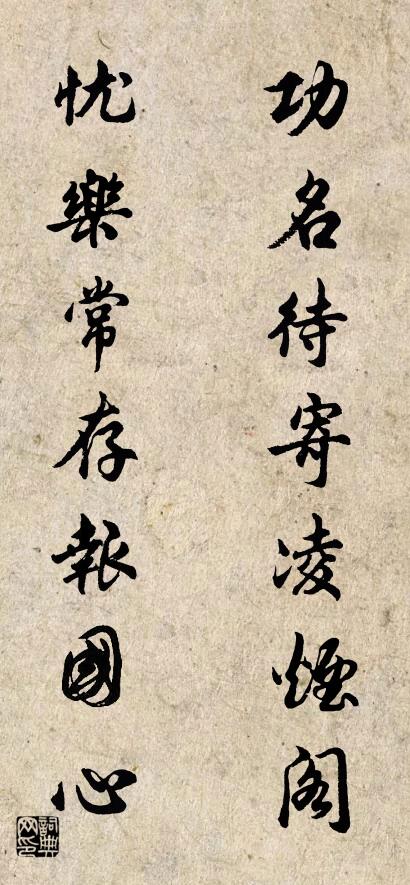 功名待寄凌煙阁
忧樂常存報國心
詞典网印